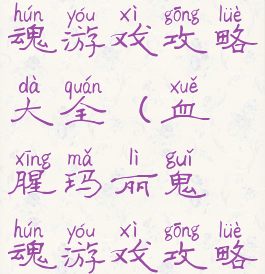 hún yóu xì gōng lüè
魂游戏攻略
dà quán xuè
大全（血
xīng mǎ lì guǐ
腥玛丽鬼
hún yóu xì gōng lüè
魂游戏攻略